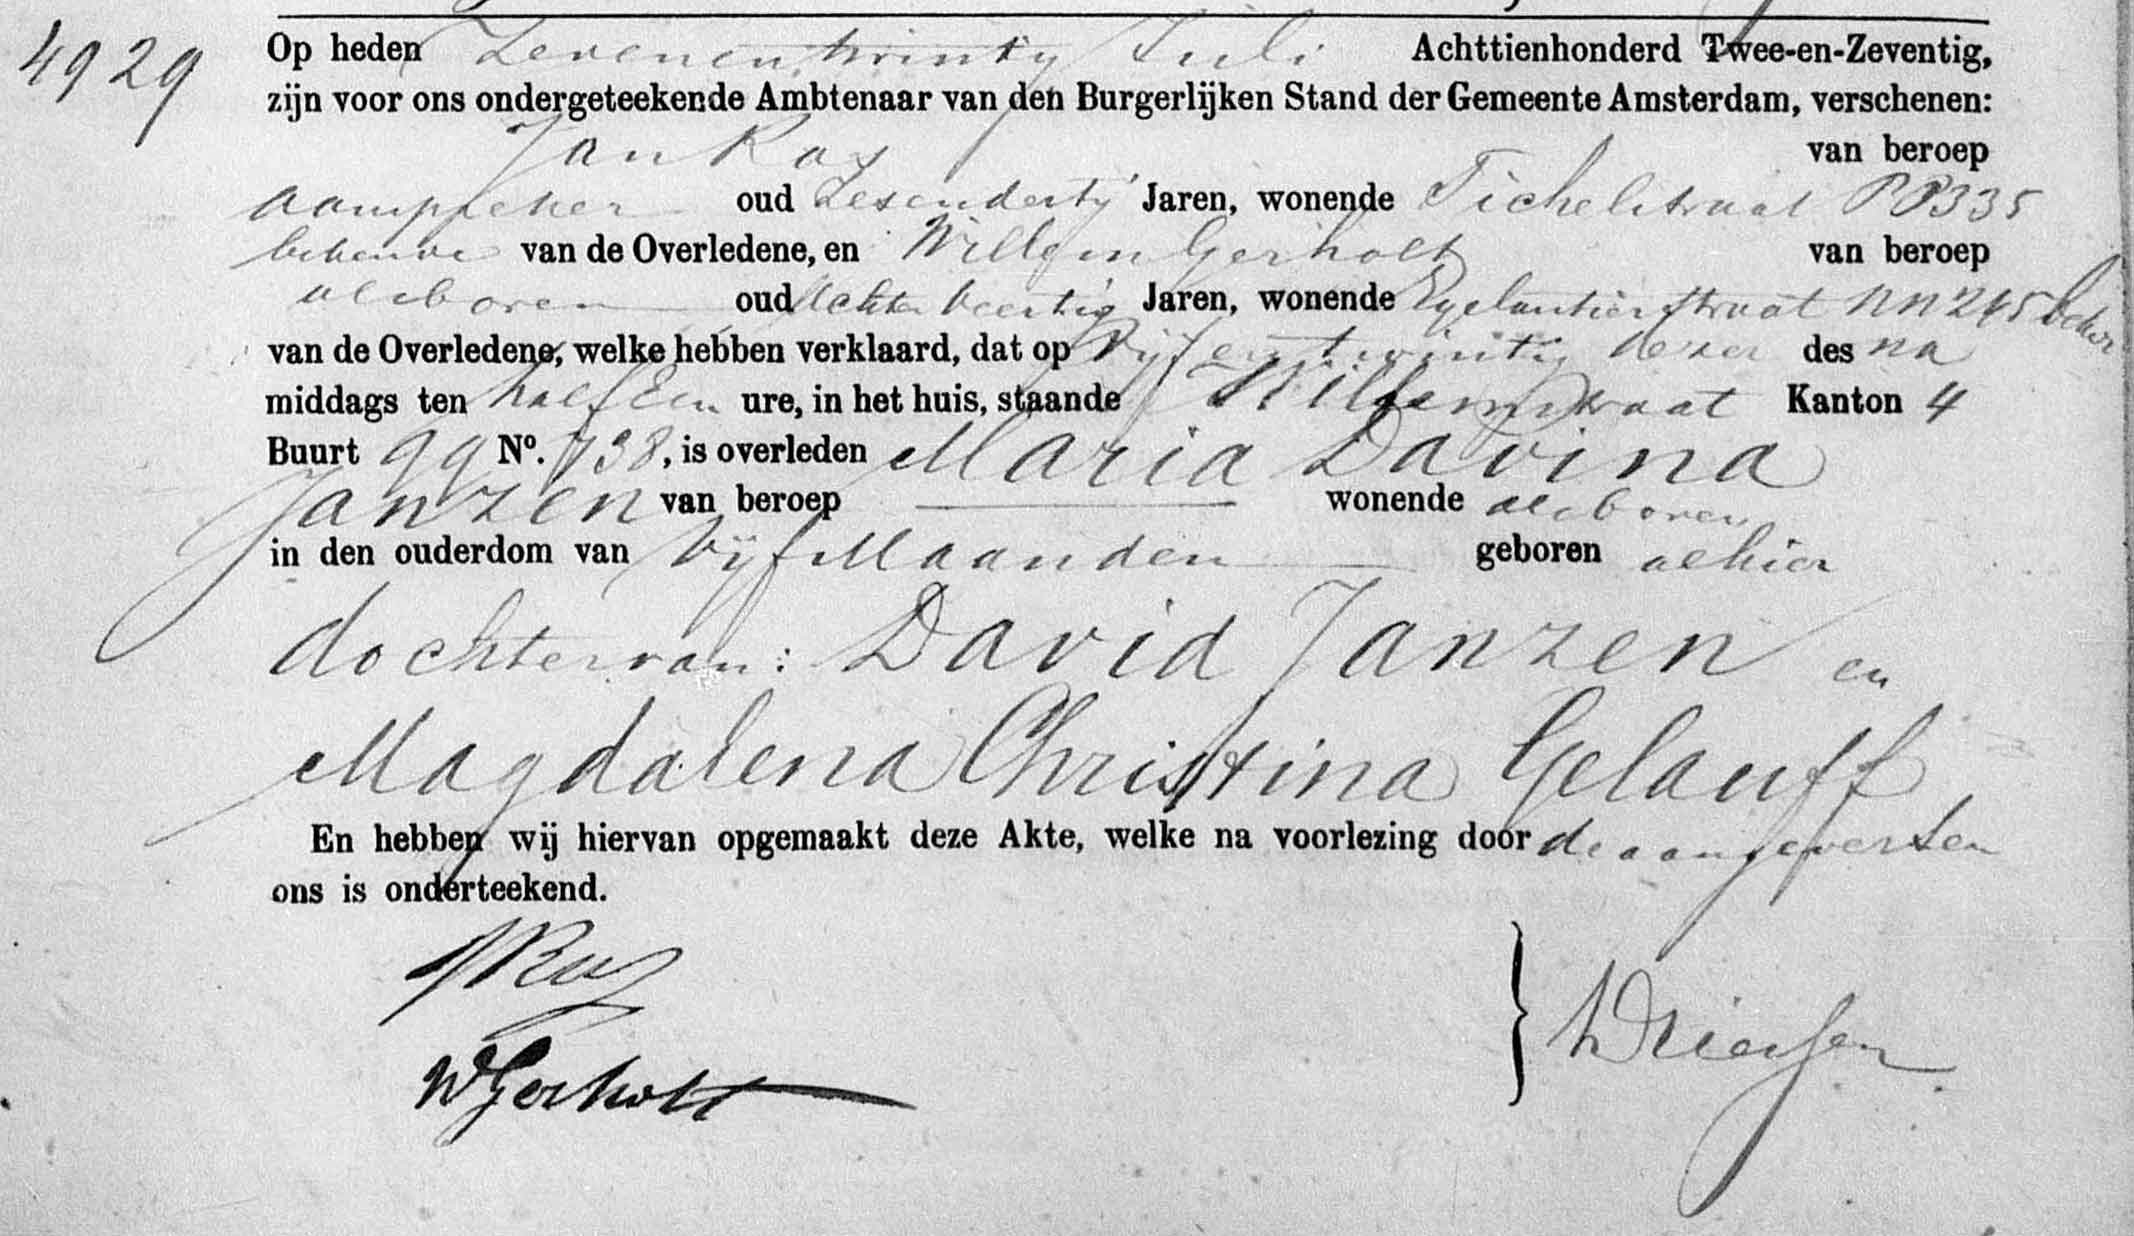 4929
Op heden Zevenentwintig Juli Achttienhonderd Twee-en-Zeventig,
zijn voor ons ondergeteekende Ambtenaar van den Burgerlijken Stand der Gemeente Amsterdam, verschenen:
Jan Ras van beroep
aanspreker oud Zesendertig Jaren, wonende Tichelstraat PP335
bekende van de Overledene, en Willem Gerholt van beroep
als boven oud Achtenveertig Jaren, wonende Egelantierstraat NN245 beken
van de Overledene, welke hebben verklaard, dat op Vijf en twintig dezer des na
middags ten half Een ure, in het huis, staande Willemstraat Kanton 4
Buurt QQ No. 738, is overleden Maria Davina
Janzen van beroep — wonende als boven
in den ouderdom van vijf Maanden geboren alhier
dochter van: David Janzen en
Magdalena Christina Gelauff
En hebben wij hiervan opgemaakt deze Akte, welke na voorlezing door de aangevers en
ons is onderteekend.
JRas
WGerholt